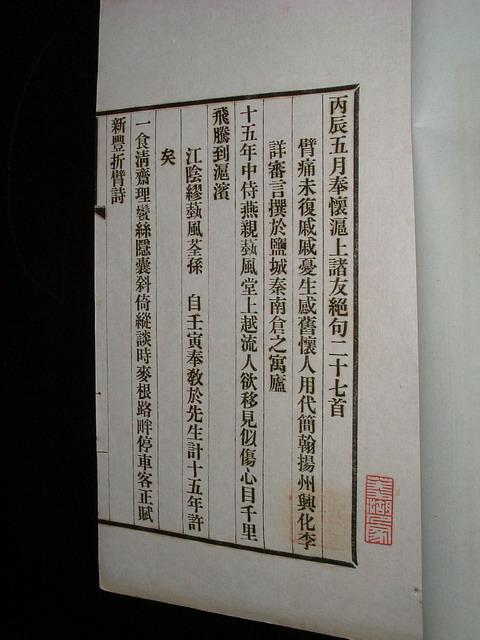 丙辰五月奉懷滬上諸友絕句二十七首
臂痛未復戚戚憂生感舊懷人用代簡翰揚州興化李
詳審言撰於鹽城秦南倉之寓廬
十五年中侍燕親藝風堂上越流人欲移見似傷心目千里
飛騰到滬濱
江陰繆藝風荃孫 自壬寅奉教於先生計十五年許
矣
一食淸齋理鬢絲隱囊斜倚縱談時麥根路畔停車客正賦
新豐折臂詩